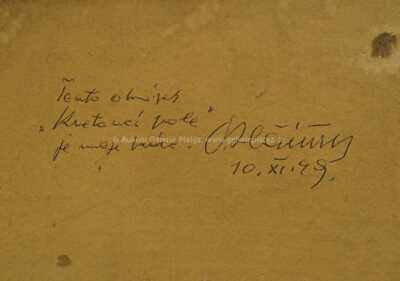 Tento obrázek
„Kvetoucí pole"
je moje práce.
10. XI. 49.